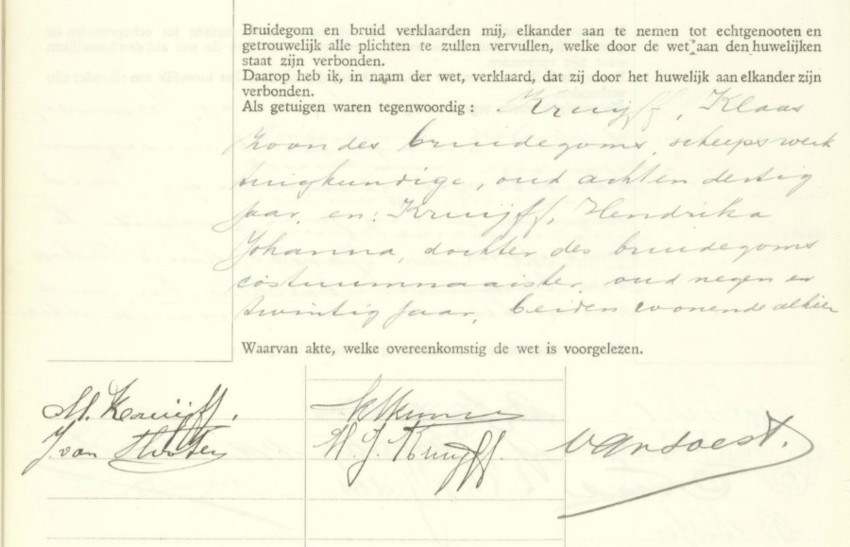 Bruidegom en bruid verklaarden mij, elkander aan te nemen tot echtgenooten en
getrouwelijk alle plichten te zullen vervullen, welke door de wet aan den huwelijken
staat zijn verbonden.
Daarop heb ik, in naam der wet, verklaard, dat zij door het huwelijk aan elkander zijn
verbonden.
Als getuigen waren tegenwoordig : Kruijff, Klaas
zoon des bruidegoms, scheepswerk
tuigkundige, oud acht en dertig
jaar, en: Kruijff, Hendrika
Johanna, dochter des bruidegoms
costuumnaaister, oud negen en
twintig jaar, beiden wonende alhier
Waarvan akte, welke overeenkomstig de wet is voorgelezen.
M. Kruijff.
J. van
H. J. Kruijff.
van Soest.